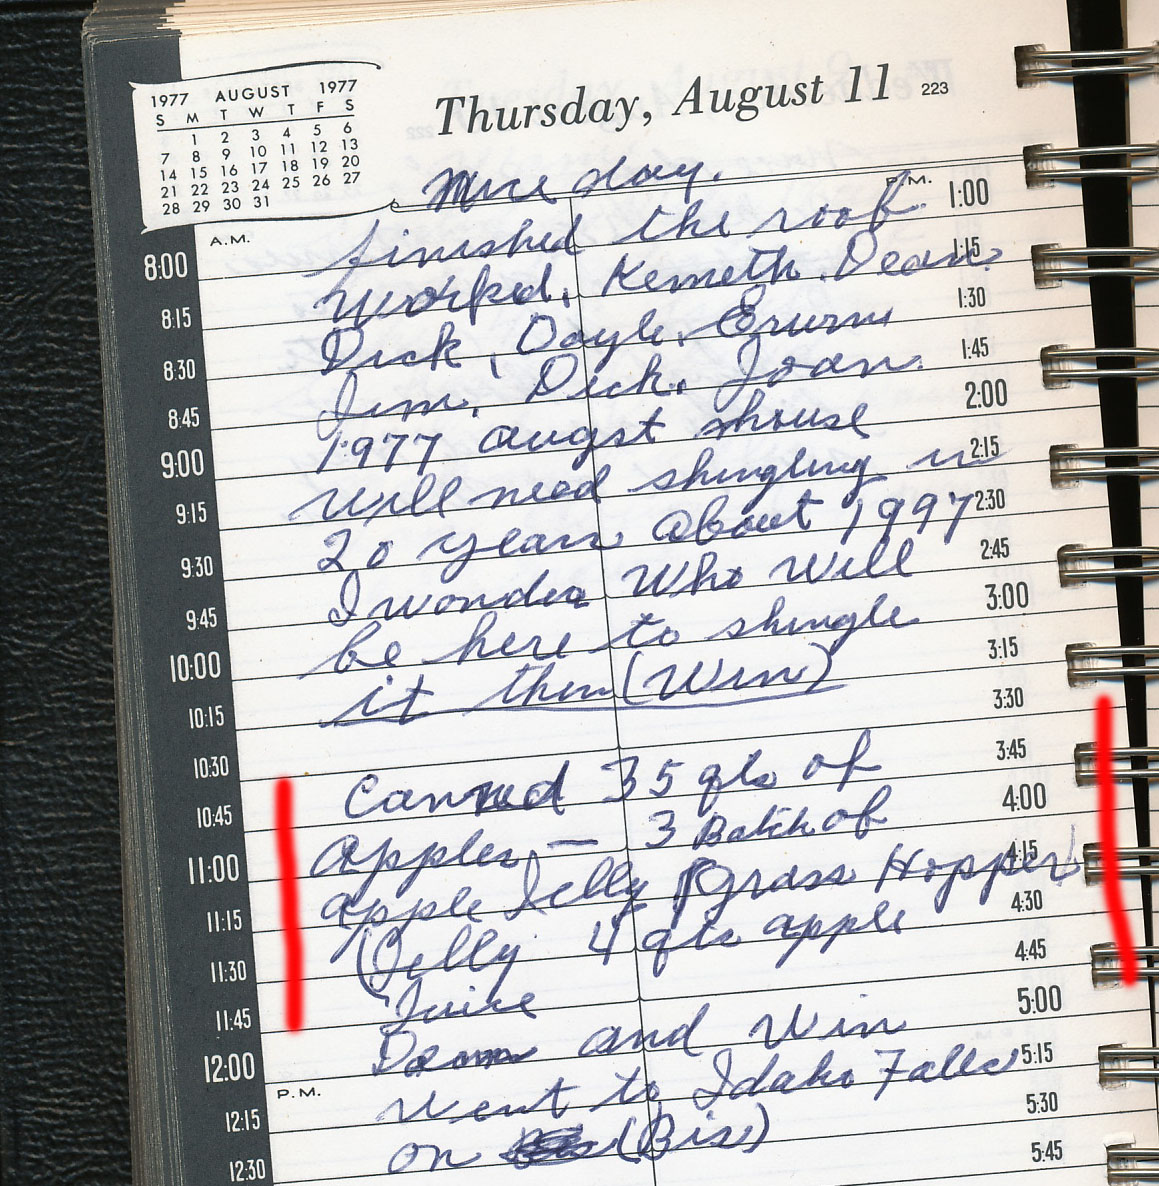 1977 AUGUST 1977
S M T W T F S
1 2 3 4 5 6
7 8 9 10 11 12 13
14 15 16 17 18 19 20
21 22 23 24 25 26 27
28 29 30 31
Thursday, August 11 223
Nice day.
A.M.
P.M.
8:00
8:15
8:30
8:45
9:00
9:15
9:30
9:45
10:00
10:15
10:30
10:45
11:00
11:15
11:30
11:45
12:00
P.M.
12:15
12:30
finished the roof
worked. Kenneth. Dean.
Dick, Doyle, Erwin
Jim, Dick. Joan.
1977 augst shouse
will need shingling in
20 years about 1997
I wonder Who Will
be here to shingle
it then (Win)
Canned 35 qts of
apples — 3 Batch of
apple Jelly (Grass Hopper)
(Jelly 4 qts apple
Juice
and Win
went to Idaho Falls
on (Bis)
1:00
1:15
1:30
1:45
2:00
2:15
2:30
2:45
3:00
3:15
3:30
3:45
4:00
4:15
4:30
4:45
5:00
5:15
5:30
5:45